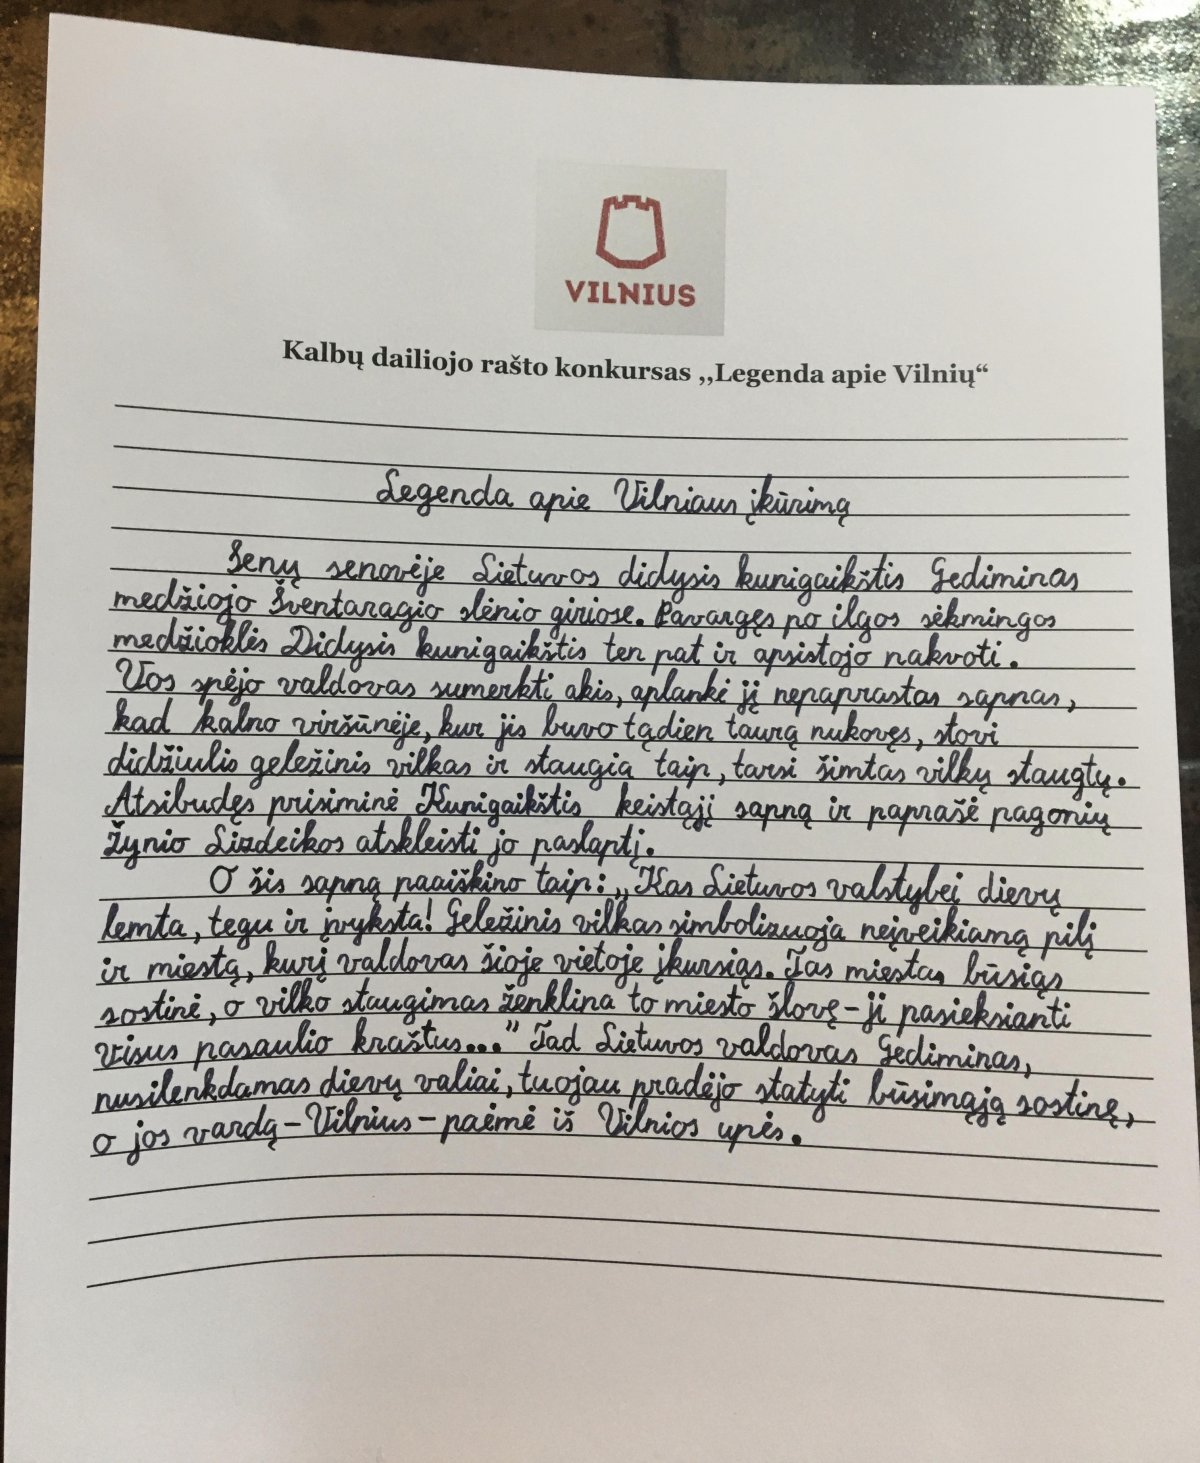 VILNIUS
Kalbų dailiojo rašto konkursas ,,Legenda apie Vilnių“
Legenda apie Vilniaus įkūrimą
Senų senovėje Lietuvos didysis kunigaikštis Gediminas
medžiojo Šventaragio slėnio giriose. Pavargęs po ilgos sėkmingos
medžioklės Didysis kunigaikštis ten pat ir apsistojo nakvoti.
Vos spėjo valdovas sumerkti akis, aplankė jį nepaprastas sapnas,
kad kalno viršūnėje, kur jis buvo tądien taurą nukovęs, stovi
didžiulis geležinis vilkas ir staugia taip, tarsi šimtas vilkų staugtų.
Atsibudęs prisiminė Kunigaikštis keistąjį sapną ir paprašė pagonių
žynio Lizdeikos atskleisti jo paslaptį.
O šis sapną paaiškino taip: „Kas Lietuvos valstybei dievų
lemta, tegu ir įvyksta! Geležinis vilkas simbolizuoja neįveikiamą pilį
ir miestą, kurį valdovas šioje vietoje įkursiąs. Tas miestas būsiąs
sostinė, o vilko staugimas ženklina to miesto šlovę - ji pasieksianti
visus pasaulio kraštus..." Tad Lietuvos valdovas Gediminas,
nusilenkdamas dievų valiai, tuojau pradėjo statyti būsimąją sostinę,
o jos vardą - Vilnius - paėmė iš Vilnios upės.